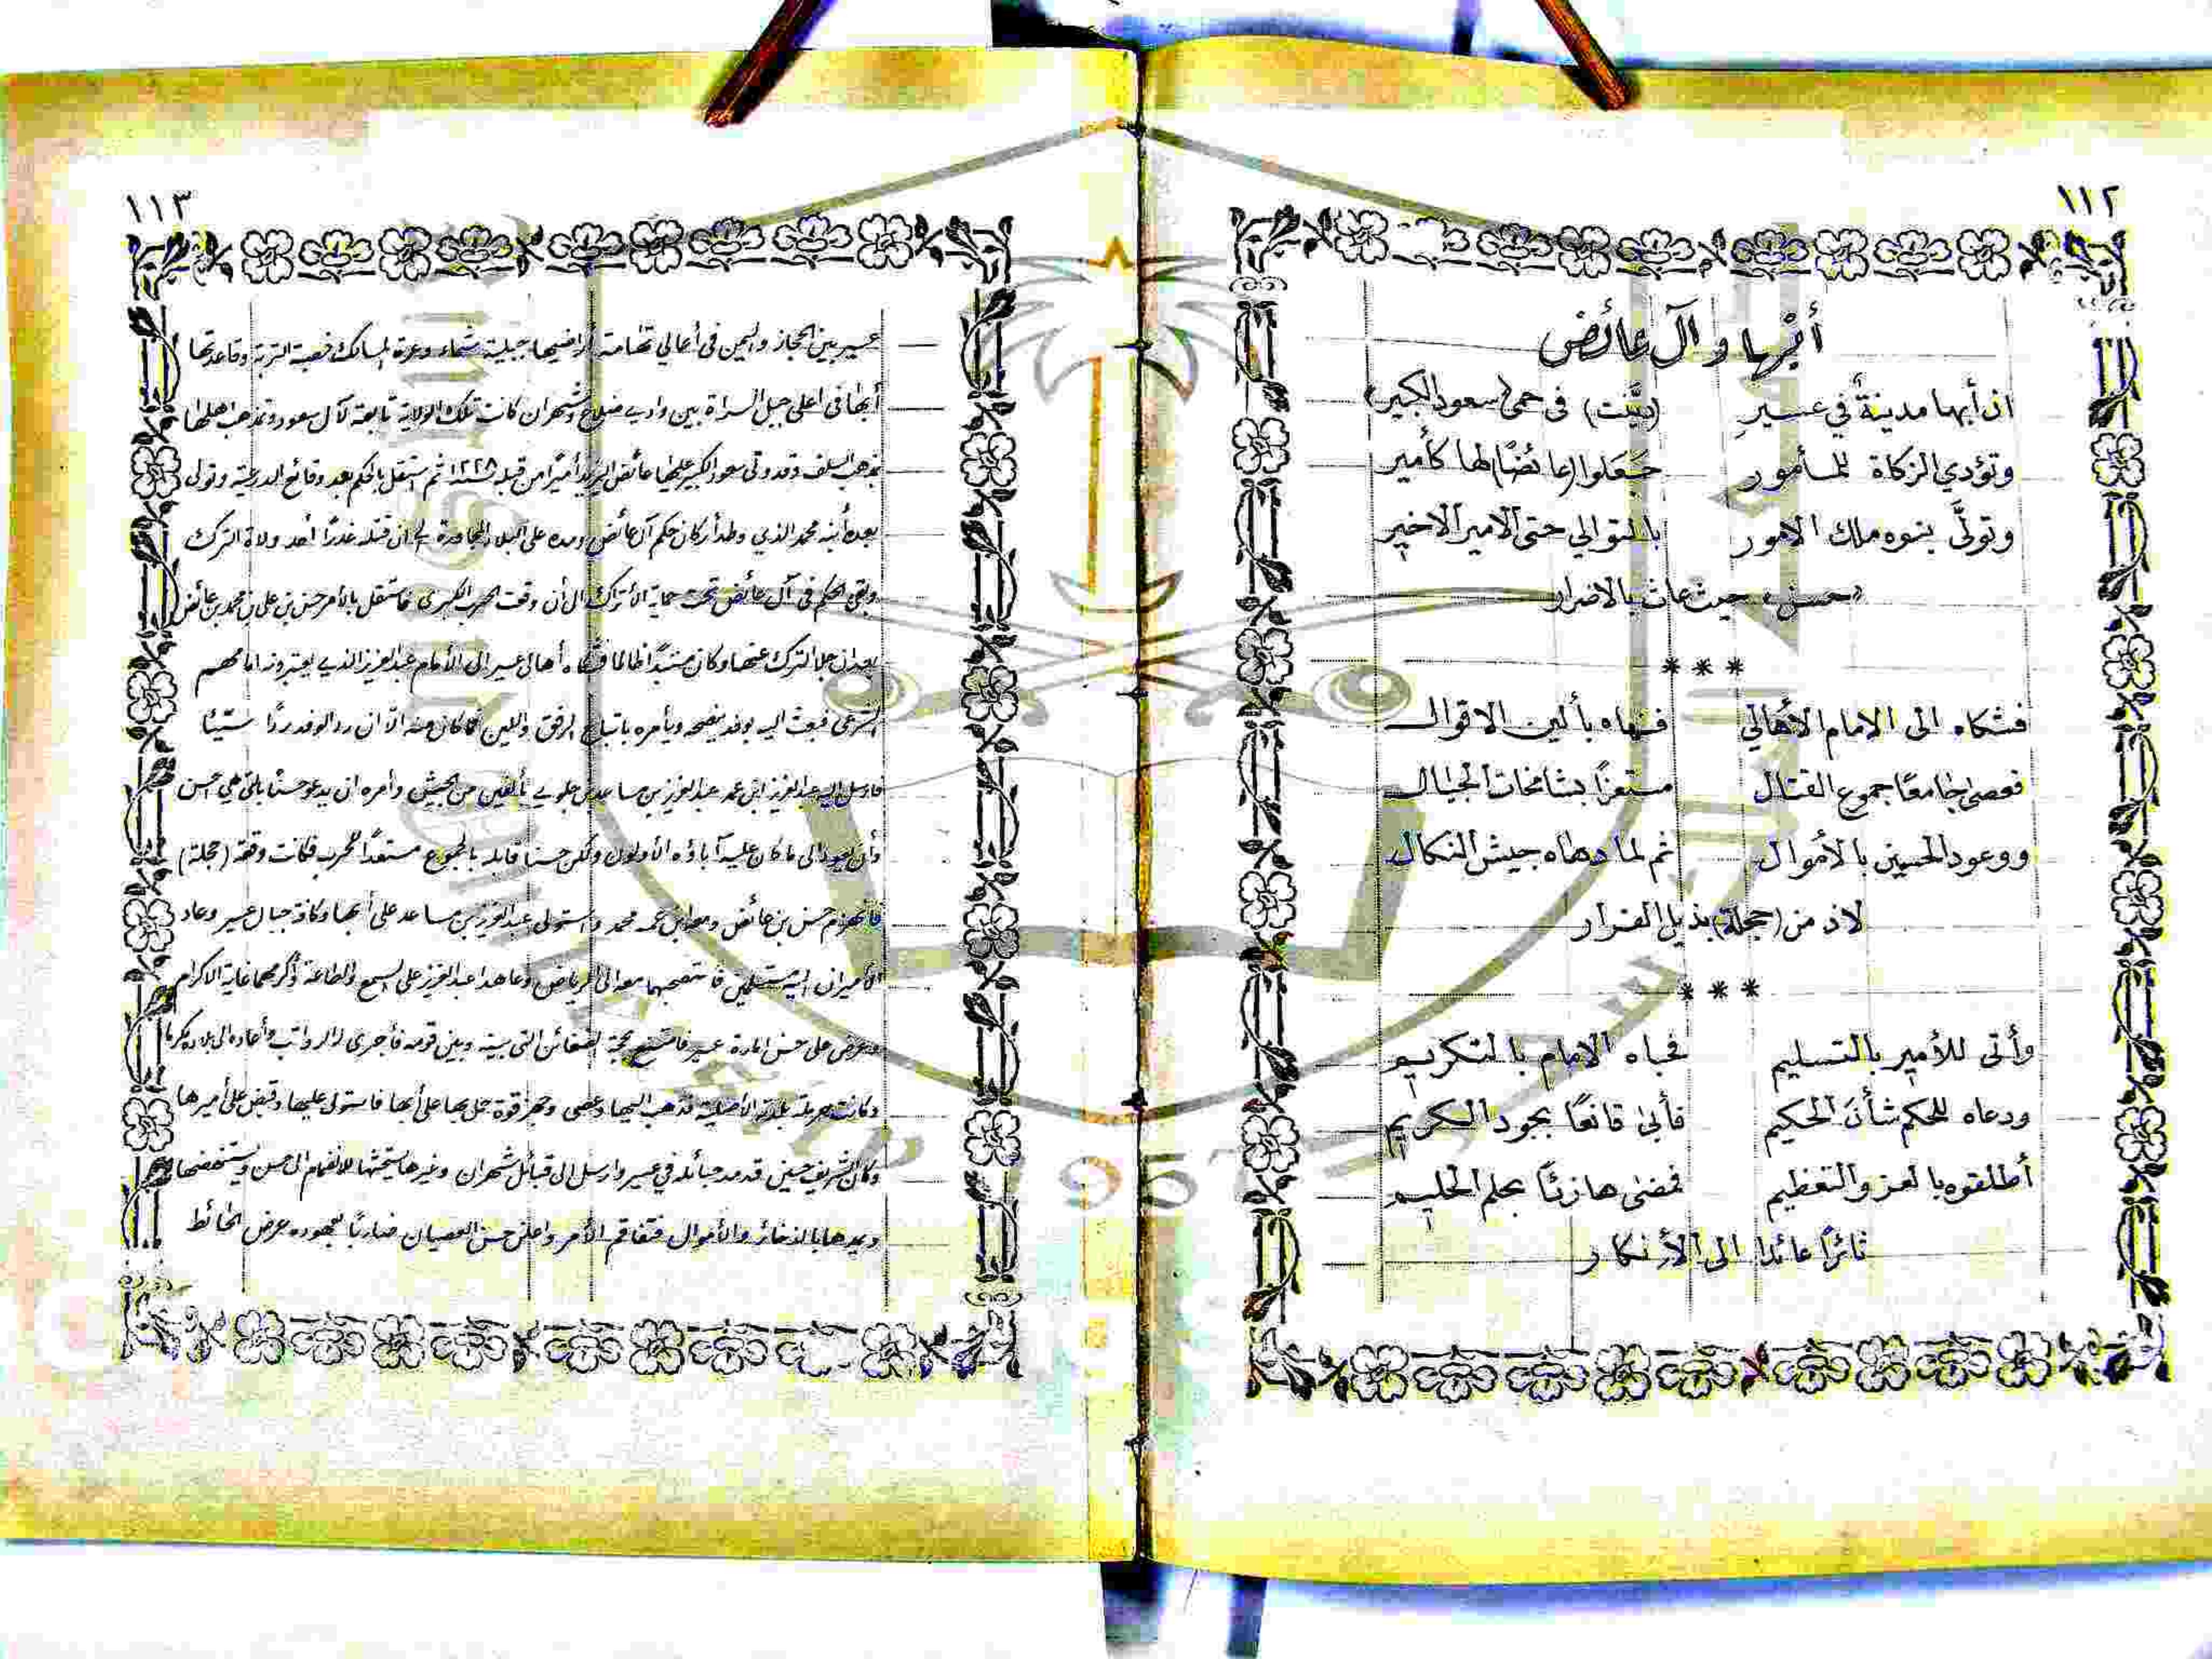 ١١٢
أبها و آل عائض
ان أبها مدينةٌ في عسيرِ (بيَّنت) فى حمى (سعود الكبير)
وتؤدي الزكاة للمأمور جَعَلوا (عائضًا) لها كأمير
وتولَّى بنوه ملك الامور بالتوالي حتى الامير الاخير
«حسن» حيث عاث بالاضرار
***
فشكاه الى الامام الأهالي فنهاه بألين الاقوال
فعصى جامعًا جموع القتال مستعزًا بشامخات الجبال
ووعود الحسين بالأموال ثم لما دهاه جيش النكال
لاذ من (حجلة) بذيل الفرار
***
وأتى للأمير بالتسليم فحباه الامام بالتكريم
ودعاه للحكم شأنَ الحكيم فأبى قانعًا بجود الكريم
أطلقوه بالعز والتعظيم فمضى هازئًا بحلم الحليم
ثائرًا عائدا الى الأنكار
١١٣
عسير بين الحجاز واليمن فى أعالي تهامة أراضيها جبلية شماء وعرة المسالك خصبة التربة وقاعدتها
أبها فى اعلى جبل السراة بين وادي ضلاع وشهران كانت تلك الولاية تابعة لآل سعود وتمذهب اهلها
بمذهب السلف وقد ولى سعود الكبير عليها عائض اليزيد أميرًا من قبله ١٢٢٥ ثم استقل بالحكم بعد وقائع الدرعية وتولى
بعده أبنه محمد الذي وطد أركان حكم آل عائض ومده على البلاد المجاورة الى ان قتله غدرًا أحد ولاة الترك
وبقى الحكم فى آل عائض تحت حماية الأتراك الى أن وقعت الحرب الكبرى فاستقل بالأمر حسن بن على بن محمد بن عائض
بعد ان جلا الترك عنها وكان مستبدًا ظالما فشكاه أهالى عسير الى الأمام عبدالعزيز الذي يعتبرونه امامهم
الشرعى فبعث اليه بوفد ينصحه ويأمره باتباع الرفق واللين فما كان منه الّا ان رد الوفد ردًا سيّئًا
فارسل اليه عبدالعزيز ابن عمه عبدالعزيز بن مساعد بن جلوي بألفين من الجيش وأمره ان يدعو حسنًا بالتى هي احسن
وأن يعود الى ما كان عليه آباؤه الأولون ولكن حسنا قابله بالجموع مستعدًا للحرب فكانت وقعة (حجلة)
فانهزم حسن بن عائض ومعه ابن عمه محمد واستولى عبدالعزيز بن مساعد على أبها وكافة جبال عسير وعاد
الأميران اليه مستسلمين فاستصحبهما معه الى الرياض وعاهدا عبدالعزيز على السمع والطاعة وأكرمهما غاية الاكرام
وعرض على حسن امارة عسير فامتنع بحجة الضغائن التى بينه وبين قومه فأجرى له الرواتب وأعاده الى بلاده مكرما
وكانت حرملة بلدته الأصلية فذهب اليها وعصى وجهز قوة حمل بها على أبها فاستولى عليها وقبض على أميرها
وكان الشريف حسين قد مد حبائله في عسير وارسل الى قبائل شهران وغيرها يستحثها للانضمام الى حسن ويستنهضها
ويمدها بالذخائر والأموال فتفاقم الأمر واعلن حسن العصيان ضاربًا بعهوده عرض الحائط